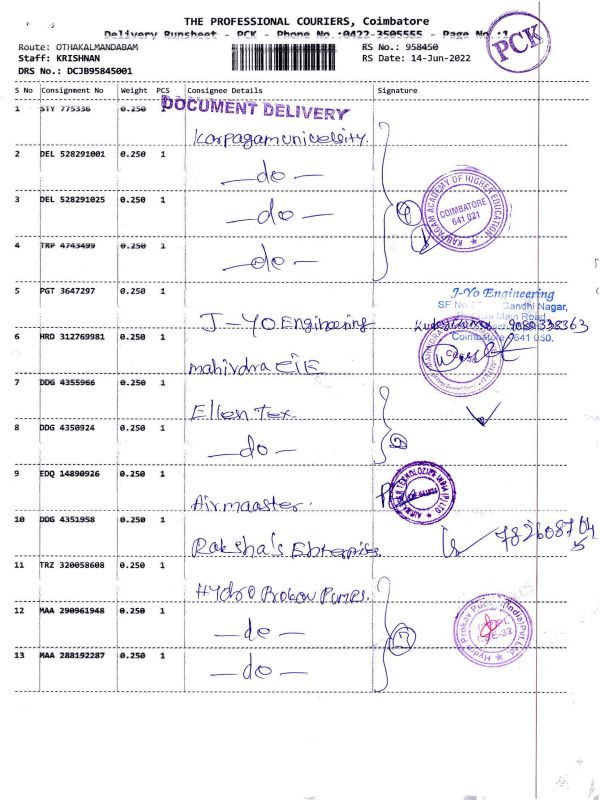 THE PROFESSIONAL COURIERS, Coimbatore
Delivery Runsheet - PCK - Phone No.:0422-3505555 - Page No.:1
PCK
Route: OTHAKALMANDABAM
RS No.: 958450
Staff: KRISHNAN
RS Date: 14-Jun-2022
DRS No.: DCJB95845001
S No Consignment No Weight PCS Consignee Details Signature
1 STY 775336 0.250 1
DOCUMENT DELIVERY
Karpagam univeesity.
2 DEL 528291001 0.250 1
—do—
3 DEL 528291025 0.250 1
—do—
KARPAGAM ACADEMY OF HIGHER EDUCATION
COIMBATORE
641 021
4
4 TRP 4743499 0.250 1
—do—
5 PGT 3647297 0.250 1
J-Yo Engineering
J-Yo Engineering
SF No Gandhi Nagar,
Main Road
9080338363
Coimbatore 641 050.
6 HRD 312769981 0.250 1
mahindra CIE
MAHINDRA
7 DDG 4355966 0.250 1
Ellen Tex
8 DDG 4350924 0.250 1
—do—
2
9 EDQ 14890926 0.250 1
Airmaaster.
10 DDG 4351958 0.250 1
Raksha's Enterprise
11 TRZ 320058608 0.250 1
Hydro Prokav Pumps.
12 MAA 290961948 0.250 1
—do—
Hydro Prokav Pumps (India) Pvt. Ltd.
3
13 MAA 288192287 0.250 1
—do—